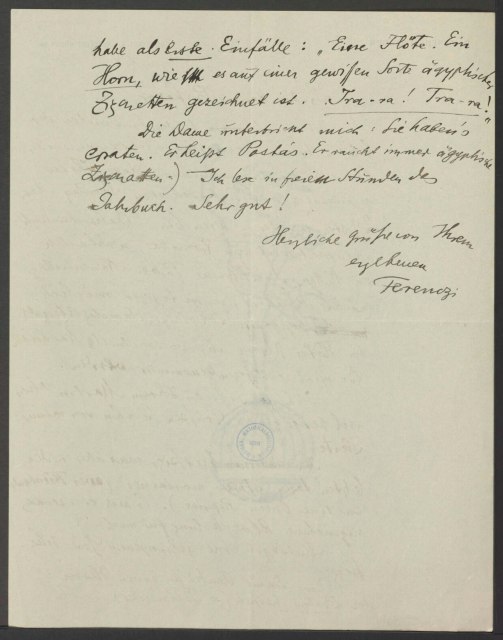 habe als Erste. Einfälle: „Eine Flöte. Ein
Horn, wie es auf einer gewissen Sorte ägyptischer
Zigaretten gezeichnet ist. Tra-ra! Tra-ra!"
Die Dame unterbricht mich: Sie haben's
erraten. Er heißt Pastás. Er raucht immer ägyptische
Zigaretten.) – Ich lese in freien Stunden das
Jahrbuch. Sehr gut!
Herzliche Grüße von Ihrem
ergebenen
Ferenczi